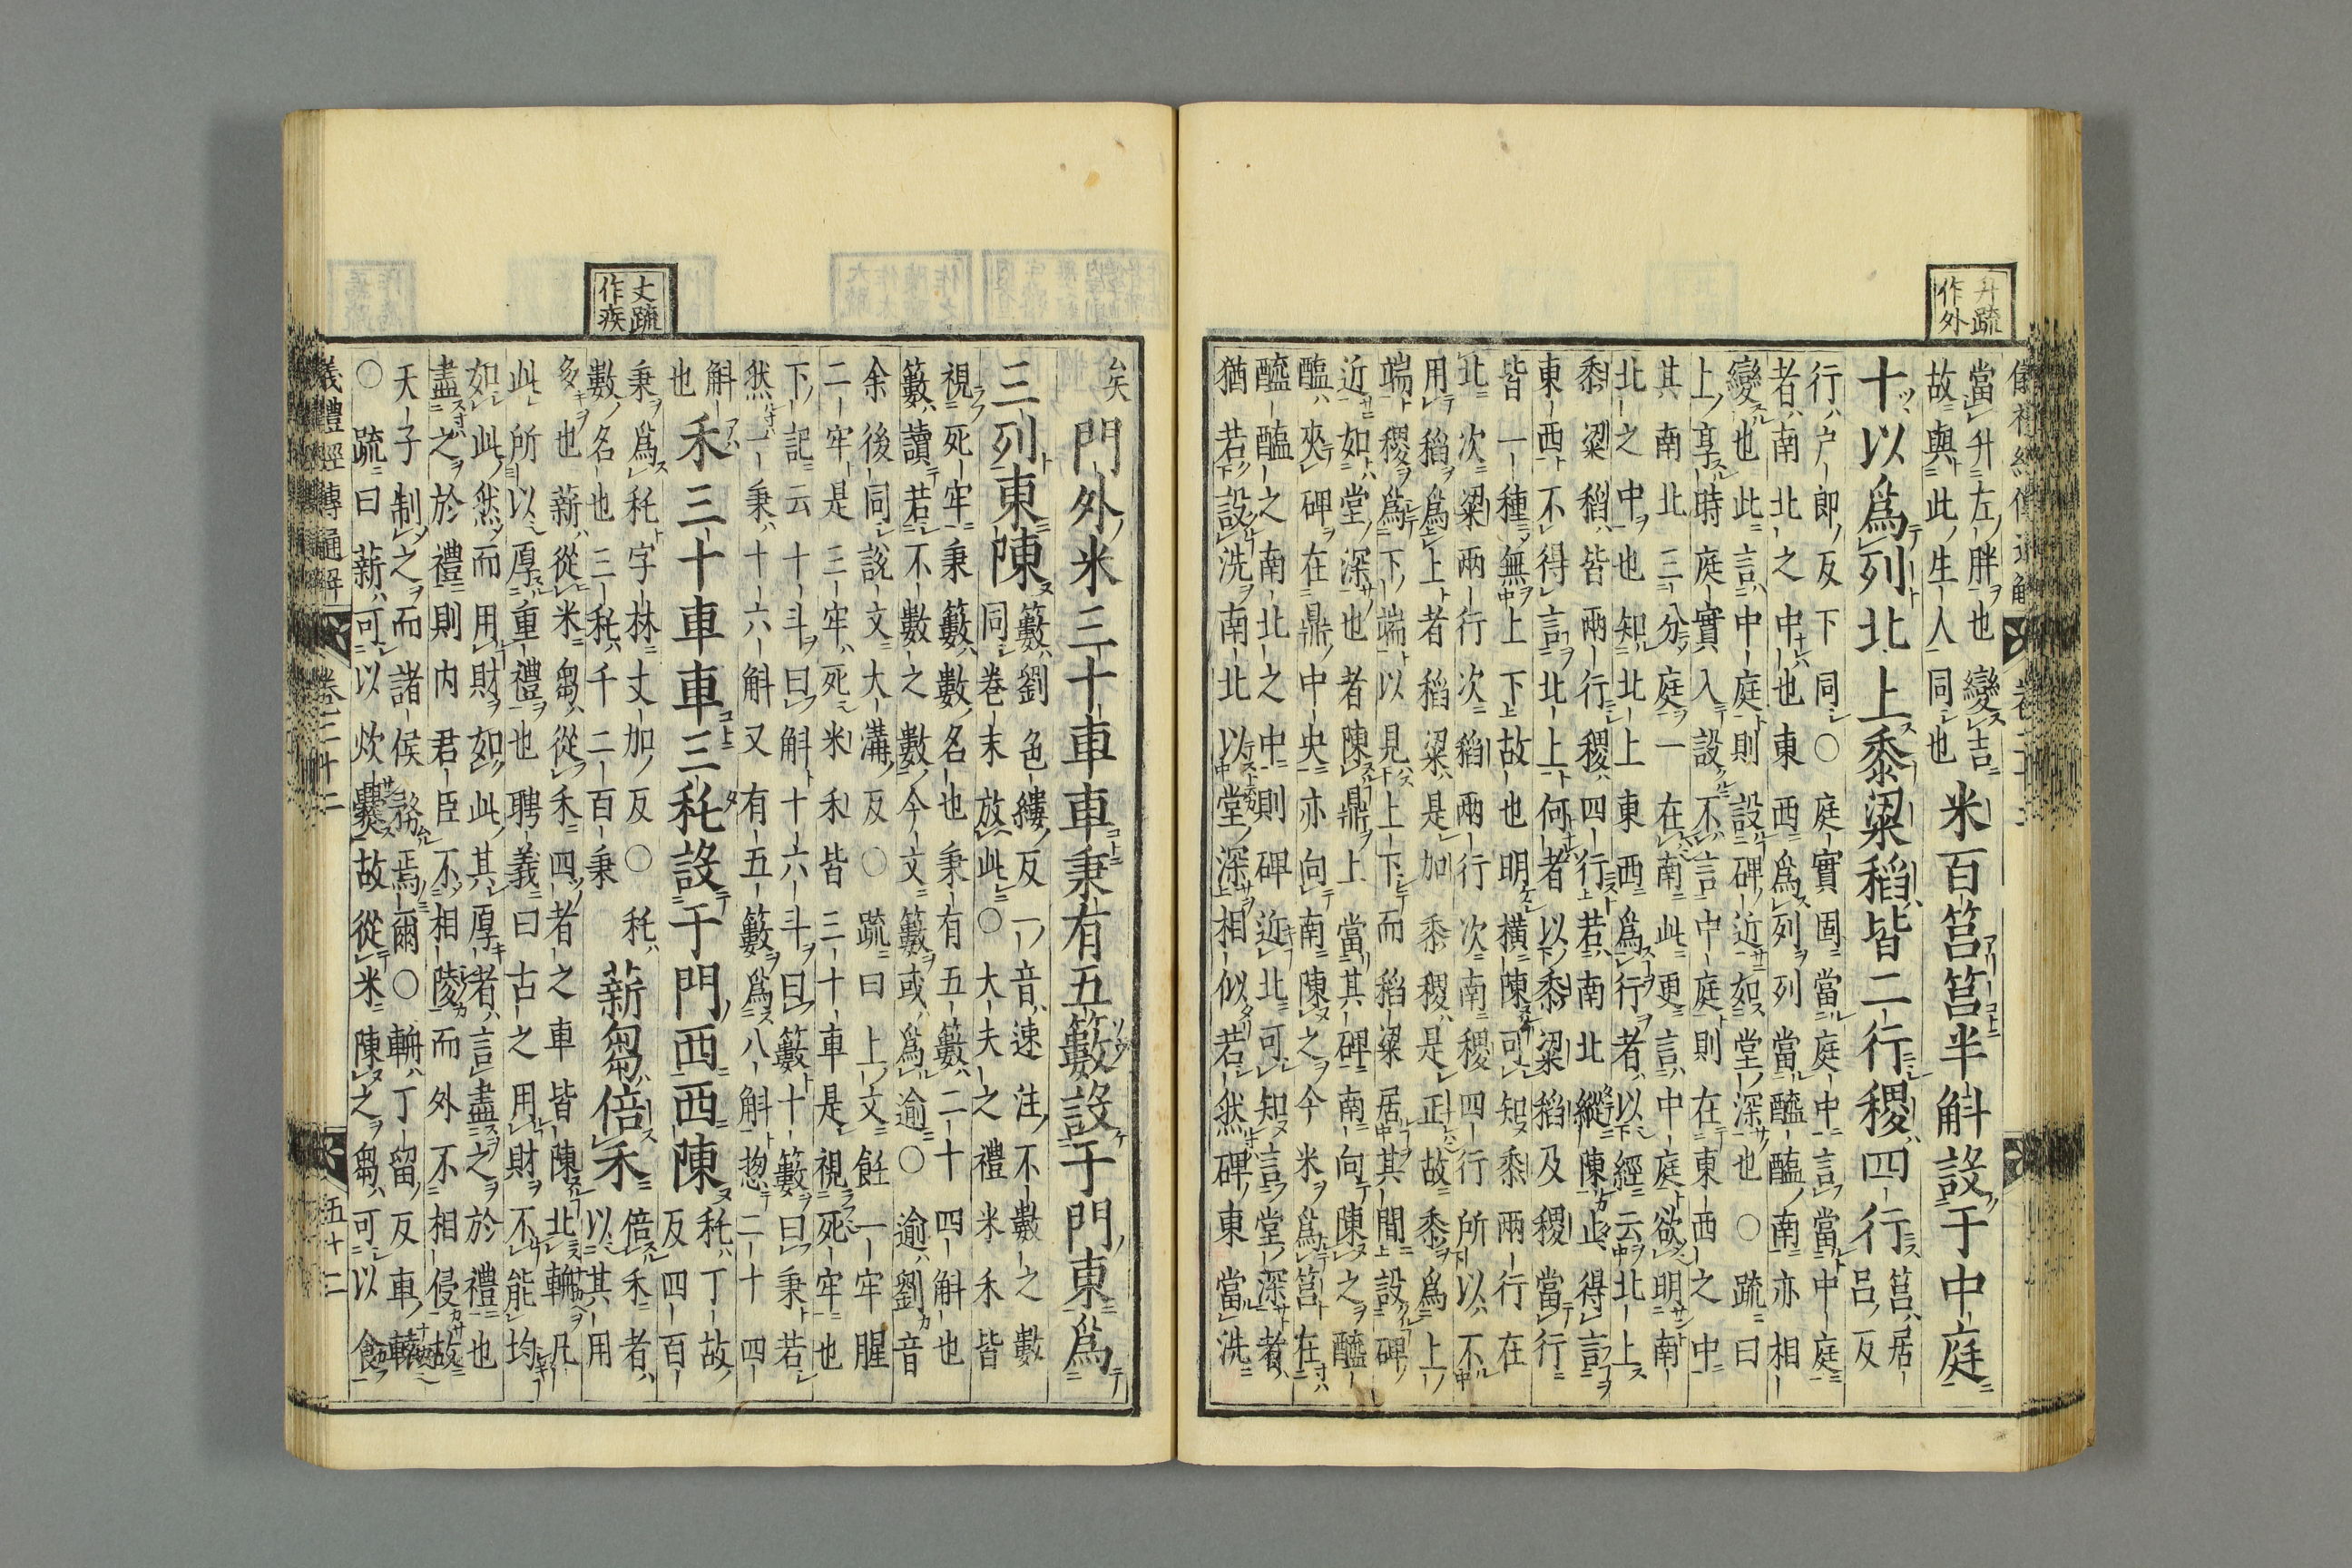 升疏
作外
當升左胖也變吉
故與此生人同也
米百筥筥半斛設于中庭
十以爲列北上黍粱稻皆二行稷四行
筥居
呂反
行戶郎反下同○庭實固當庭中言當中庭
者南北之中也東西爲列列當醯醢南亦相
變也此言中庭則設碑近如堂深也○疏曰
上享時庭實入設不言中庭則在東西之中
其南北三分庭一在南此更言中庭欲明南
北之中也知北上東西爲行者以經云北上
黍粱稻皆兩行稷四行若南北縱陳止得言
東西不得言北上何者以黍粱稻及稷當行
皆一種無上下故也明橫陳可知黍兩行在
北次粱兩行次稻兩行次南稷四行所以不
用稻爲上者稻粱是加黍稷是正故黍爲上
端稷爲下端以見上下而稻粱居其間設碑
近如堂深也者陳鼎上當其碑南向陳之醯
醢夾碑在鼎中央亦向南陳之今米爲筥在
醯醢之南北之中則碑近北可知言堂深者
猶若設洗南北以堂深相似若然碑東當洗
矣
門外米三十車車秉有五籔設于門東爲
三列東陳
籔劉色縷反一音速注不數之數
同卷末放此○大夫之禮米禾皆
視死牢秉籔數名也秉有五籔二十四斛也
籔讀若不數之數今文籔或爲逾○逾劉音
余後同說文大溝反○疏曰上文飪一牢腥
二牢是三牢死米禾皆三十車是視死牢也
下記云十斗曰斛十六斗曰籔十籔曰秉若
然一秉十六斛又有五籔爲八斛揔二十四
斛
也
禾三十車車三秅設于門西西陳
秅丁故
反四百
秉爲秅字林丈加反○秅
數名也三秅千二百秉
薪芻倍禾
倍禾者
以其用
多也薪從米芻從禾四者之車皆陳北輈凡
此所以厚重禮也聘義曰古之用財不能均
如此然而用財如此其厚者言盡之於禮也
盡之於禮則內君臣不相陵而外不相侵故
天子制之而諸侯務焉爾○輈丁留反車轅
○疏曰薪可以炊爨故從米陳之芻可以食
丈疏
作疾
儀禮經傳通解 卷二十二 五十二